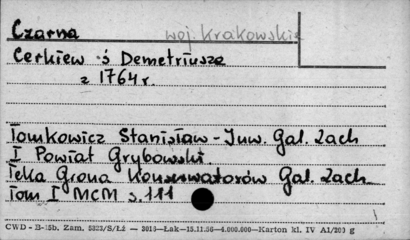 Czarna woj. Krakowskie
Cerkiew ś Demetriusza
z 1764 r.
Tomkowicz Stanisław - Inw. Gal. Zach
I Powiat Grybowski.
Teka Grona Konserwatorów Gal. Zach
Tom I MCM s. 111
CWD - B-15b. Zam. 5323/S/Łż — 3010—Łak—15.11.56—4.000.000—Karton kl. IV A1/200 g